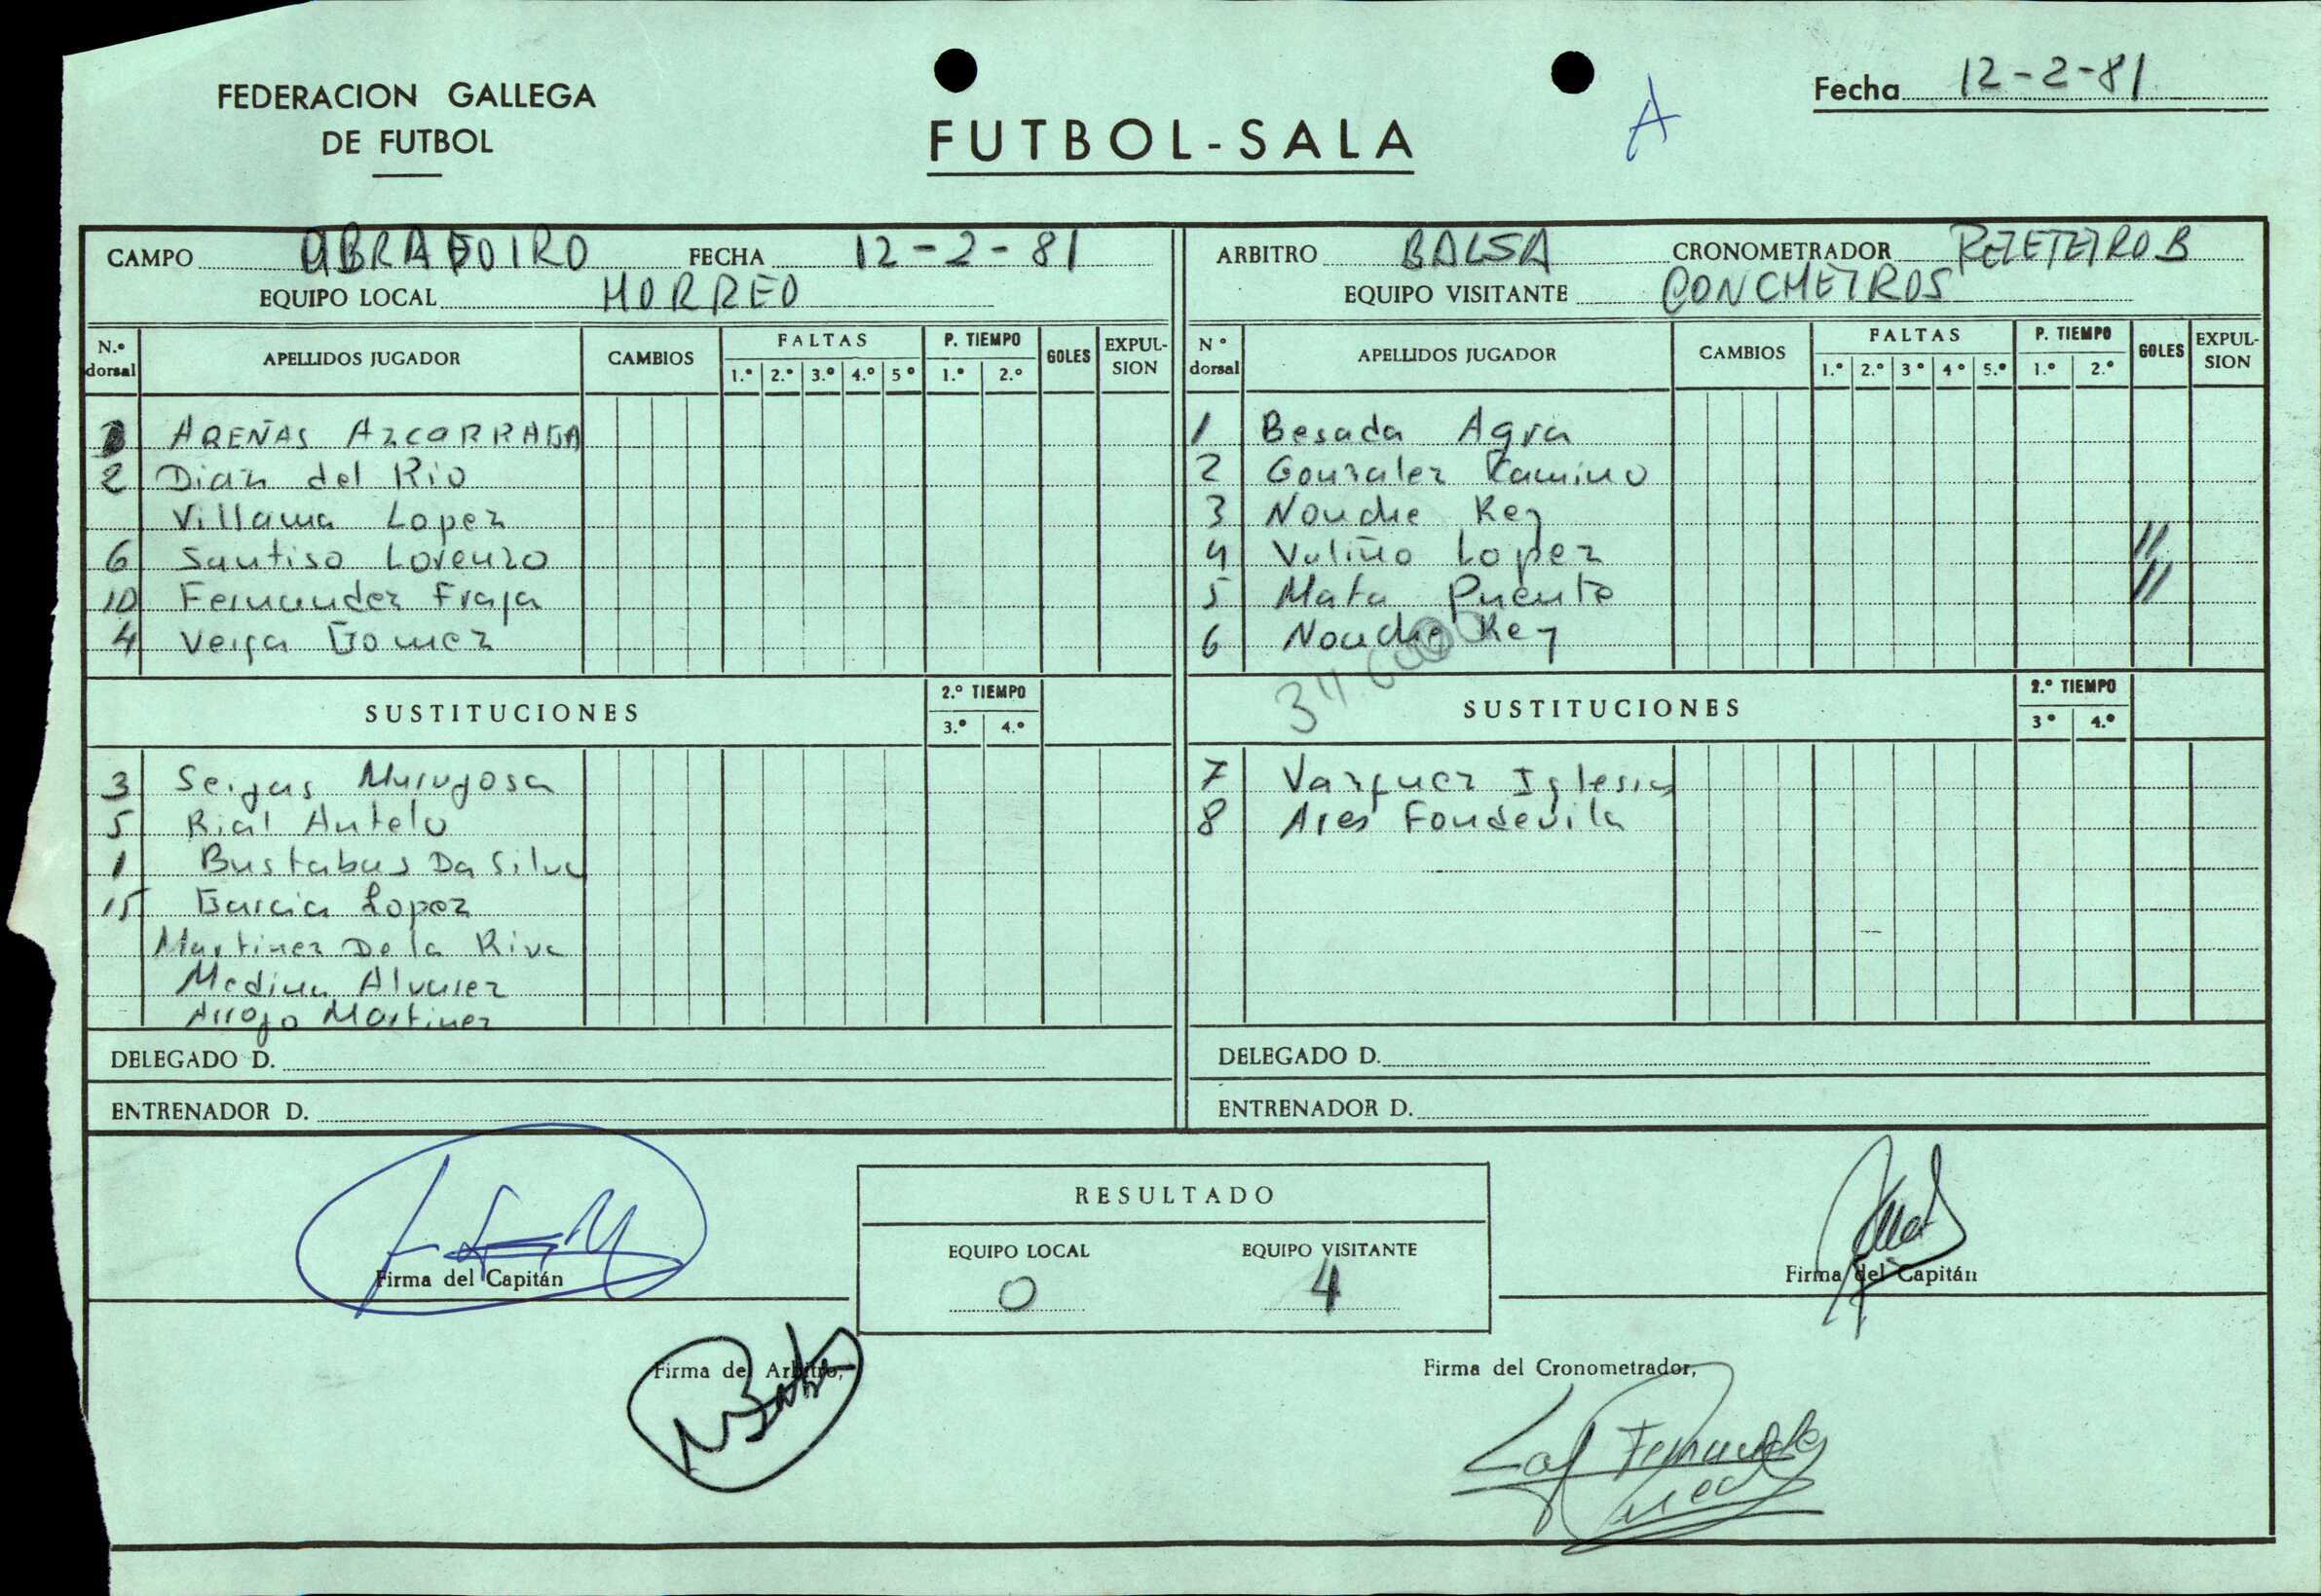 FEDERACION GALLEGA
DE FUTBOL
FUTBOL-SALA
A
Fecha 12-2-81
CAMPO OBRADOIRO FECHA 12-2-81
EQUIPO LOCAL HORREO
N.º dorsal APELLIDOS JUGADOR CAMBIOS FALTAS 1.º 2.º 3.º 4.º 5º P. TIEMPO 1.º 2.º GOLES EXPULSION
AREÑAS AZCARRAGA
2 Dian del Rio
Villama Lopez
6 Santiso Lorenzo
10 Fernandez Fraga
4 Veiga Gomez
SUSTITUCIONES 2.º TIEMPO 3.º 4.º
3 Seijas
5 Rial Antelo
1 Bustabas Da Silva
15 Garcia Lopez
Martinez De la Riva
Medina Alvarez
Arrojo Martinez
DELEGADO D.
ENTRENADOR D.
ARBITRO BALSA CRONOMETRADOR
EQUIPO VISITANTE CONCHEIROS
Nº dorsal APELLIDOS JUGADOR CAMBIOS FALTAS 1.º 2.º 3º 4º 5.º P. TIEMPO 1.º 2.º GOLES EXPULSION
1 Besada Agra
2 Gonzalez Camino
3 Nouche Rey
4 Vuliño Lopez //
5 Mata Puente //
6 Nouche Rey
SUSTITUCIONES 2.º TIEMPO 3º 4.º
7 Vazquez Iglesias
8 Ares Fondevila
DELEGADO D.
ENTRENADOR D.
Firma del Capitán
RESULTADO
EQUIPO LOCAL EQUIPO VISITANTE
0 4
Firma del Capitán
Firma del Arbitro,
Firma del Cronometrador,